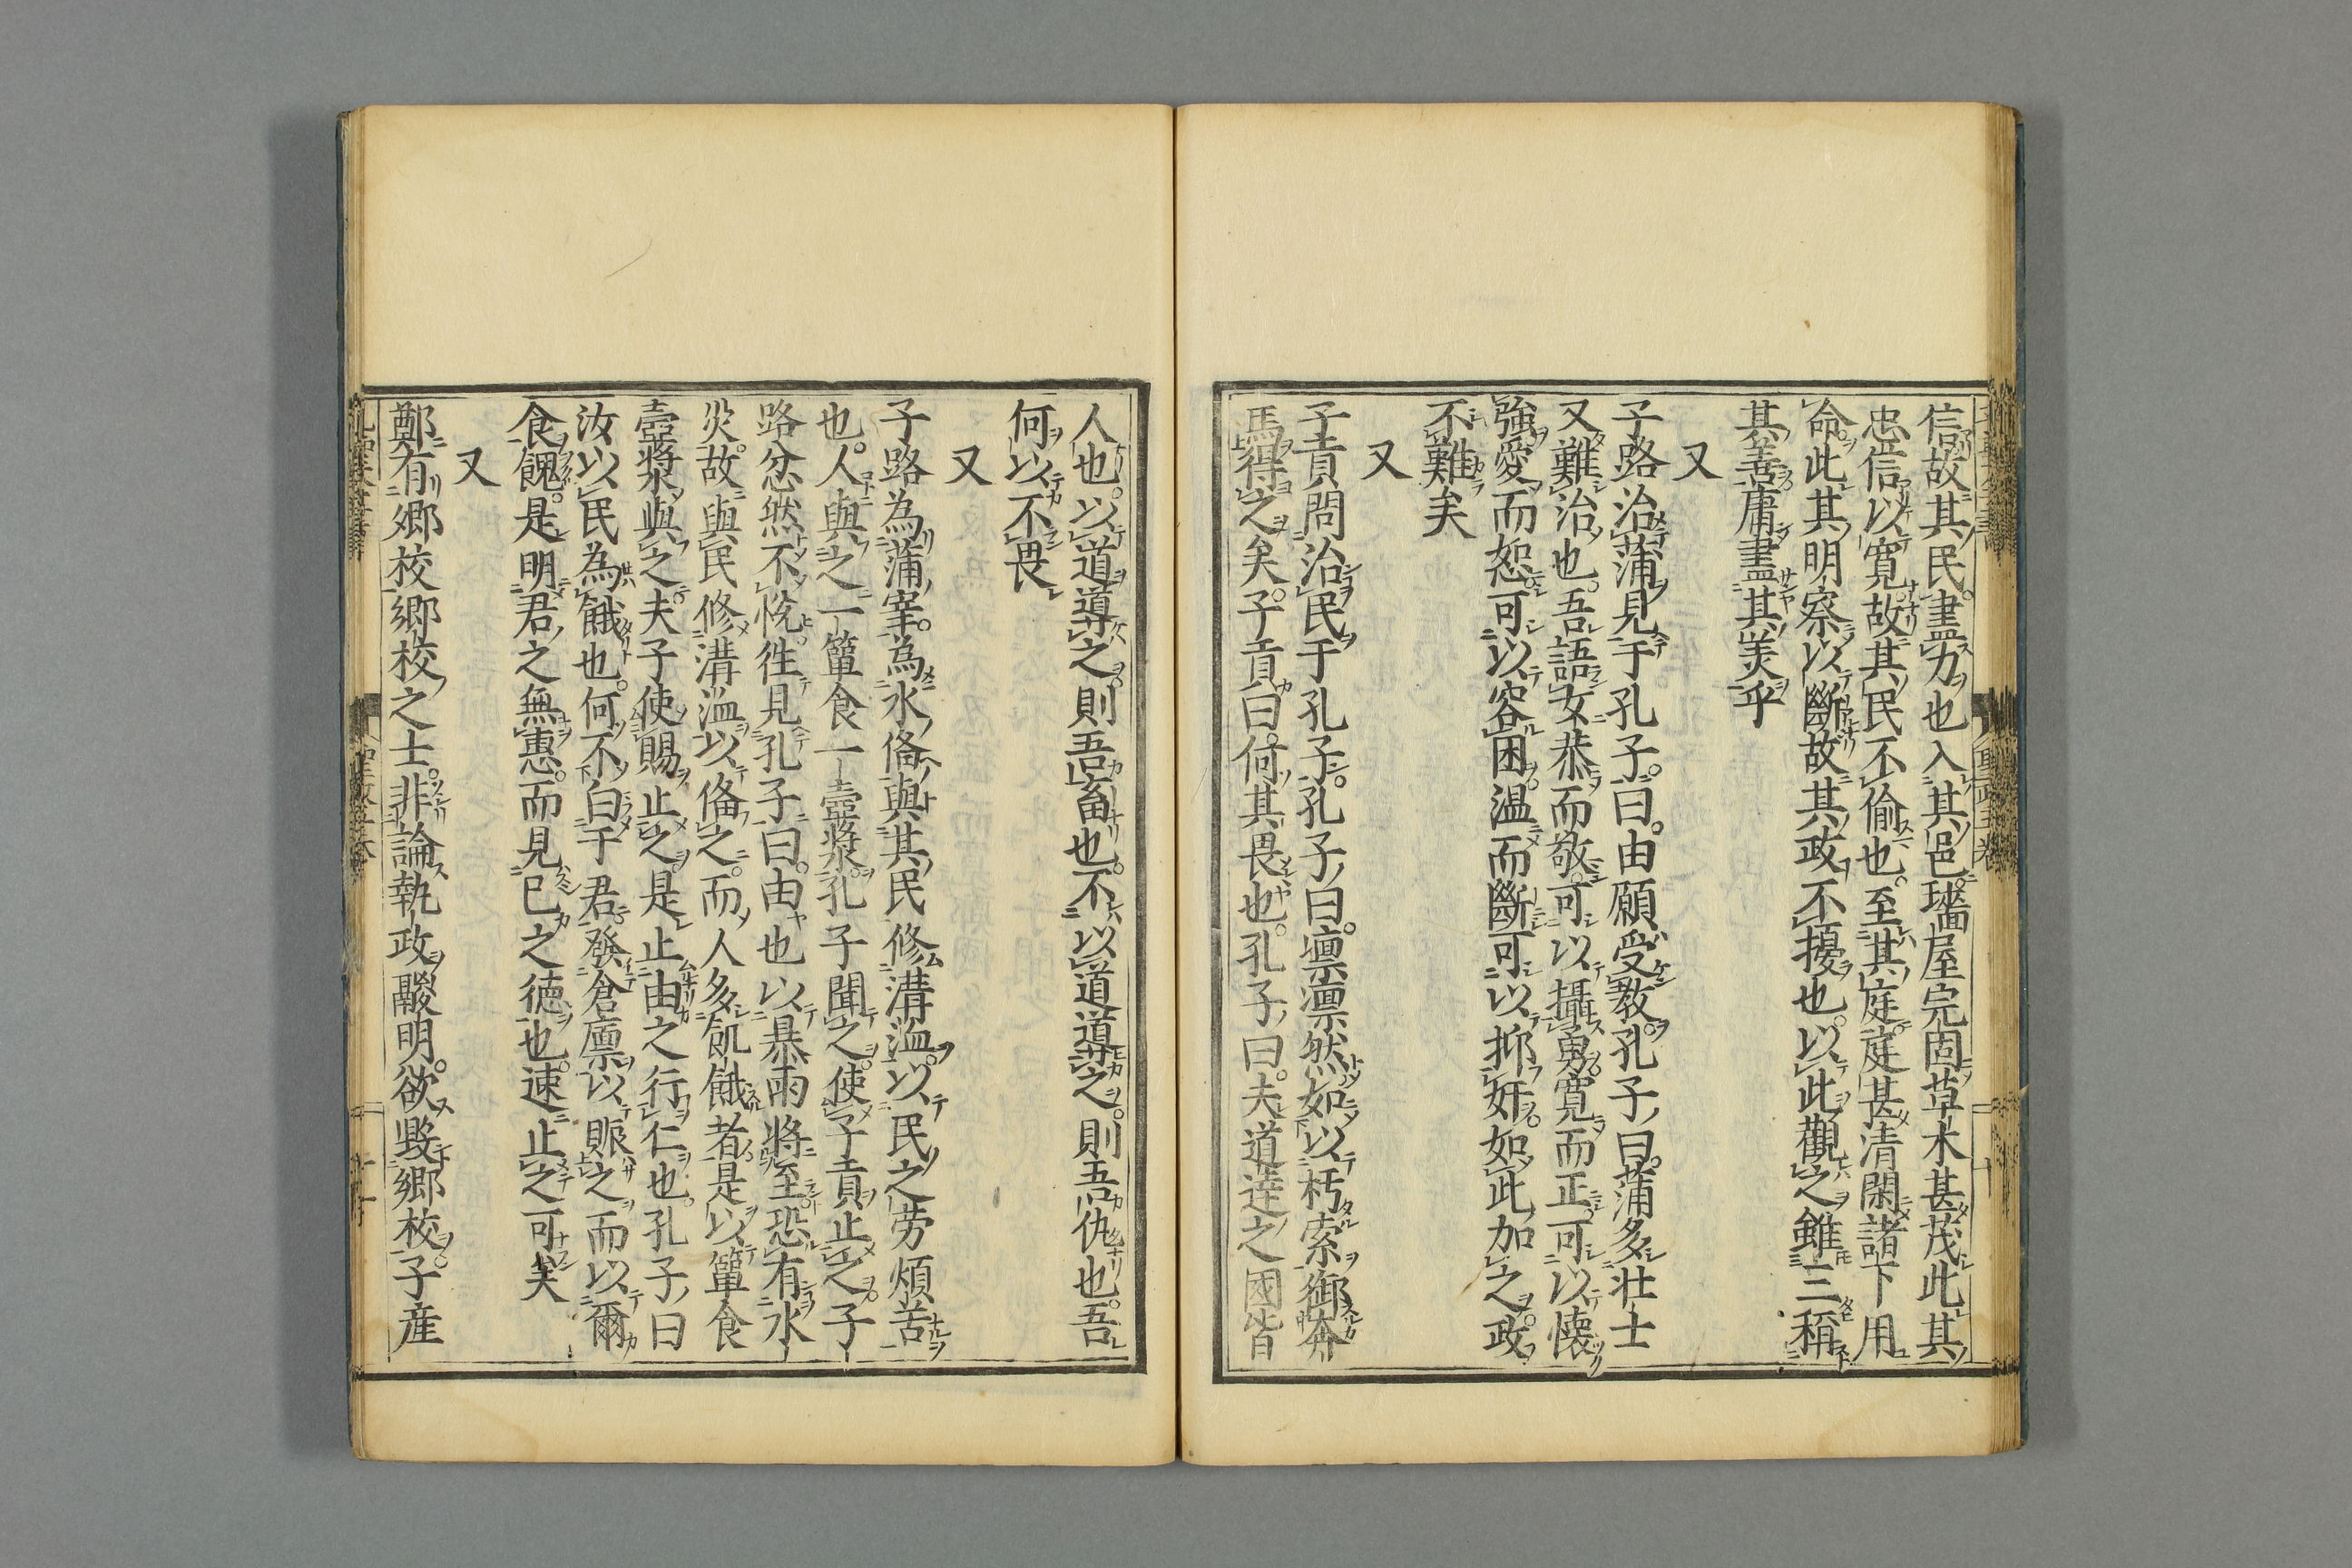 信故其民盡力也入其邑墻屋完固草木甚茂此其
忠信以寛故其民不偷也至其庭庭甚清閑諸下用
命此其明察以斷故其政不擾也以此觀之雖三稱
其善庸盡其美乎
又
子路治蒲見于孔子曰由願受教孔子曰蒲多壮士
又難治也吾語女恭而敬可以攝勇寛而正可以懐
強愛而恕可以容困温而斷可以抑奸如此加之政
不難矣
又
子貢問治民于孔子孔子曰凛凛然如以朽索御奔
馬得之矣子貢曰何其畏也孔子曰夫道達之國皆
人也以道導之則吾畜也不以道導之則吾仇也吾
何以不畏
又
子路為蒲宰為水俻與其民修溝洫以民之劳煩苦
也人與之一簞食一壷漿孔子聞之使子貢止之子
路忿然不悅徃見孔子曰由也以暴雨將至恐有水
災故與民修溝洫以俻之而人多飢餓者是以簞食
壷漿與之夫子使賜止之是止由之行仁也孔子曰
汝以民為餓也何不白于君發倉廩以賑之而以爾
食餽是明君之無惠而見已之徳也速止之可矣
又
鄭有郷校郷校之士非論執政鬷明欲毀郷校子産